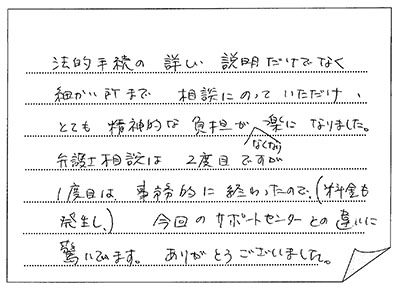 法的手続の 詳しい 説明だけでなく
細かい所まで 相談にのって いただけ、
とても 精神的な 負担が 楽に なりました。
なくなり
弁護士相談は 2度目ですが
1度目は、事務的に 終わったので、(料金も
発生し、) 今回のサポートセンターとの 違いに
驚いています。 ありがとうございました。